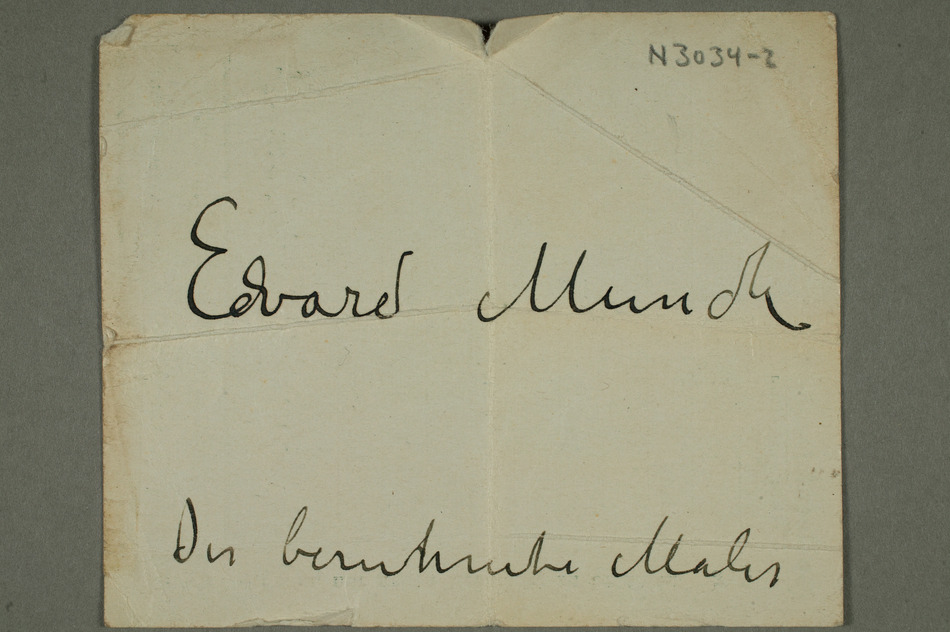 N3034-2
Edvard Munch
Der beruhmte Maler